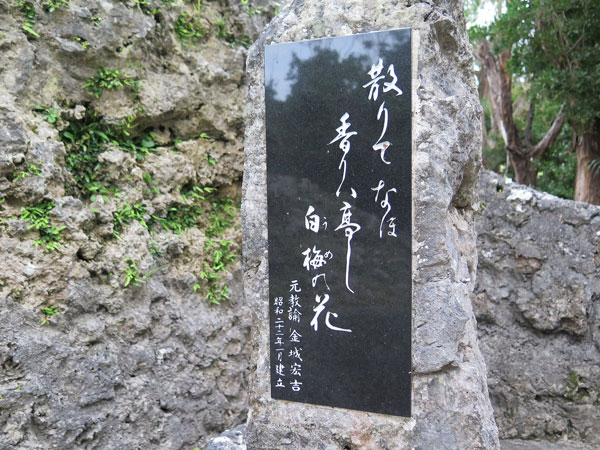 散りてなほ
香りハ高し
白梅の花
うめ
元教諭 金城宏吉
昭和二十三年一月建立